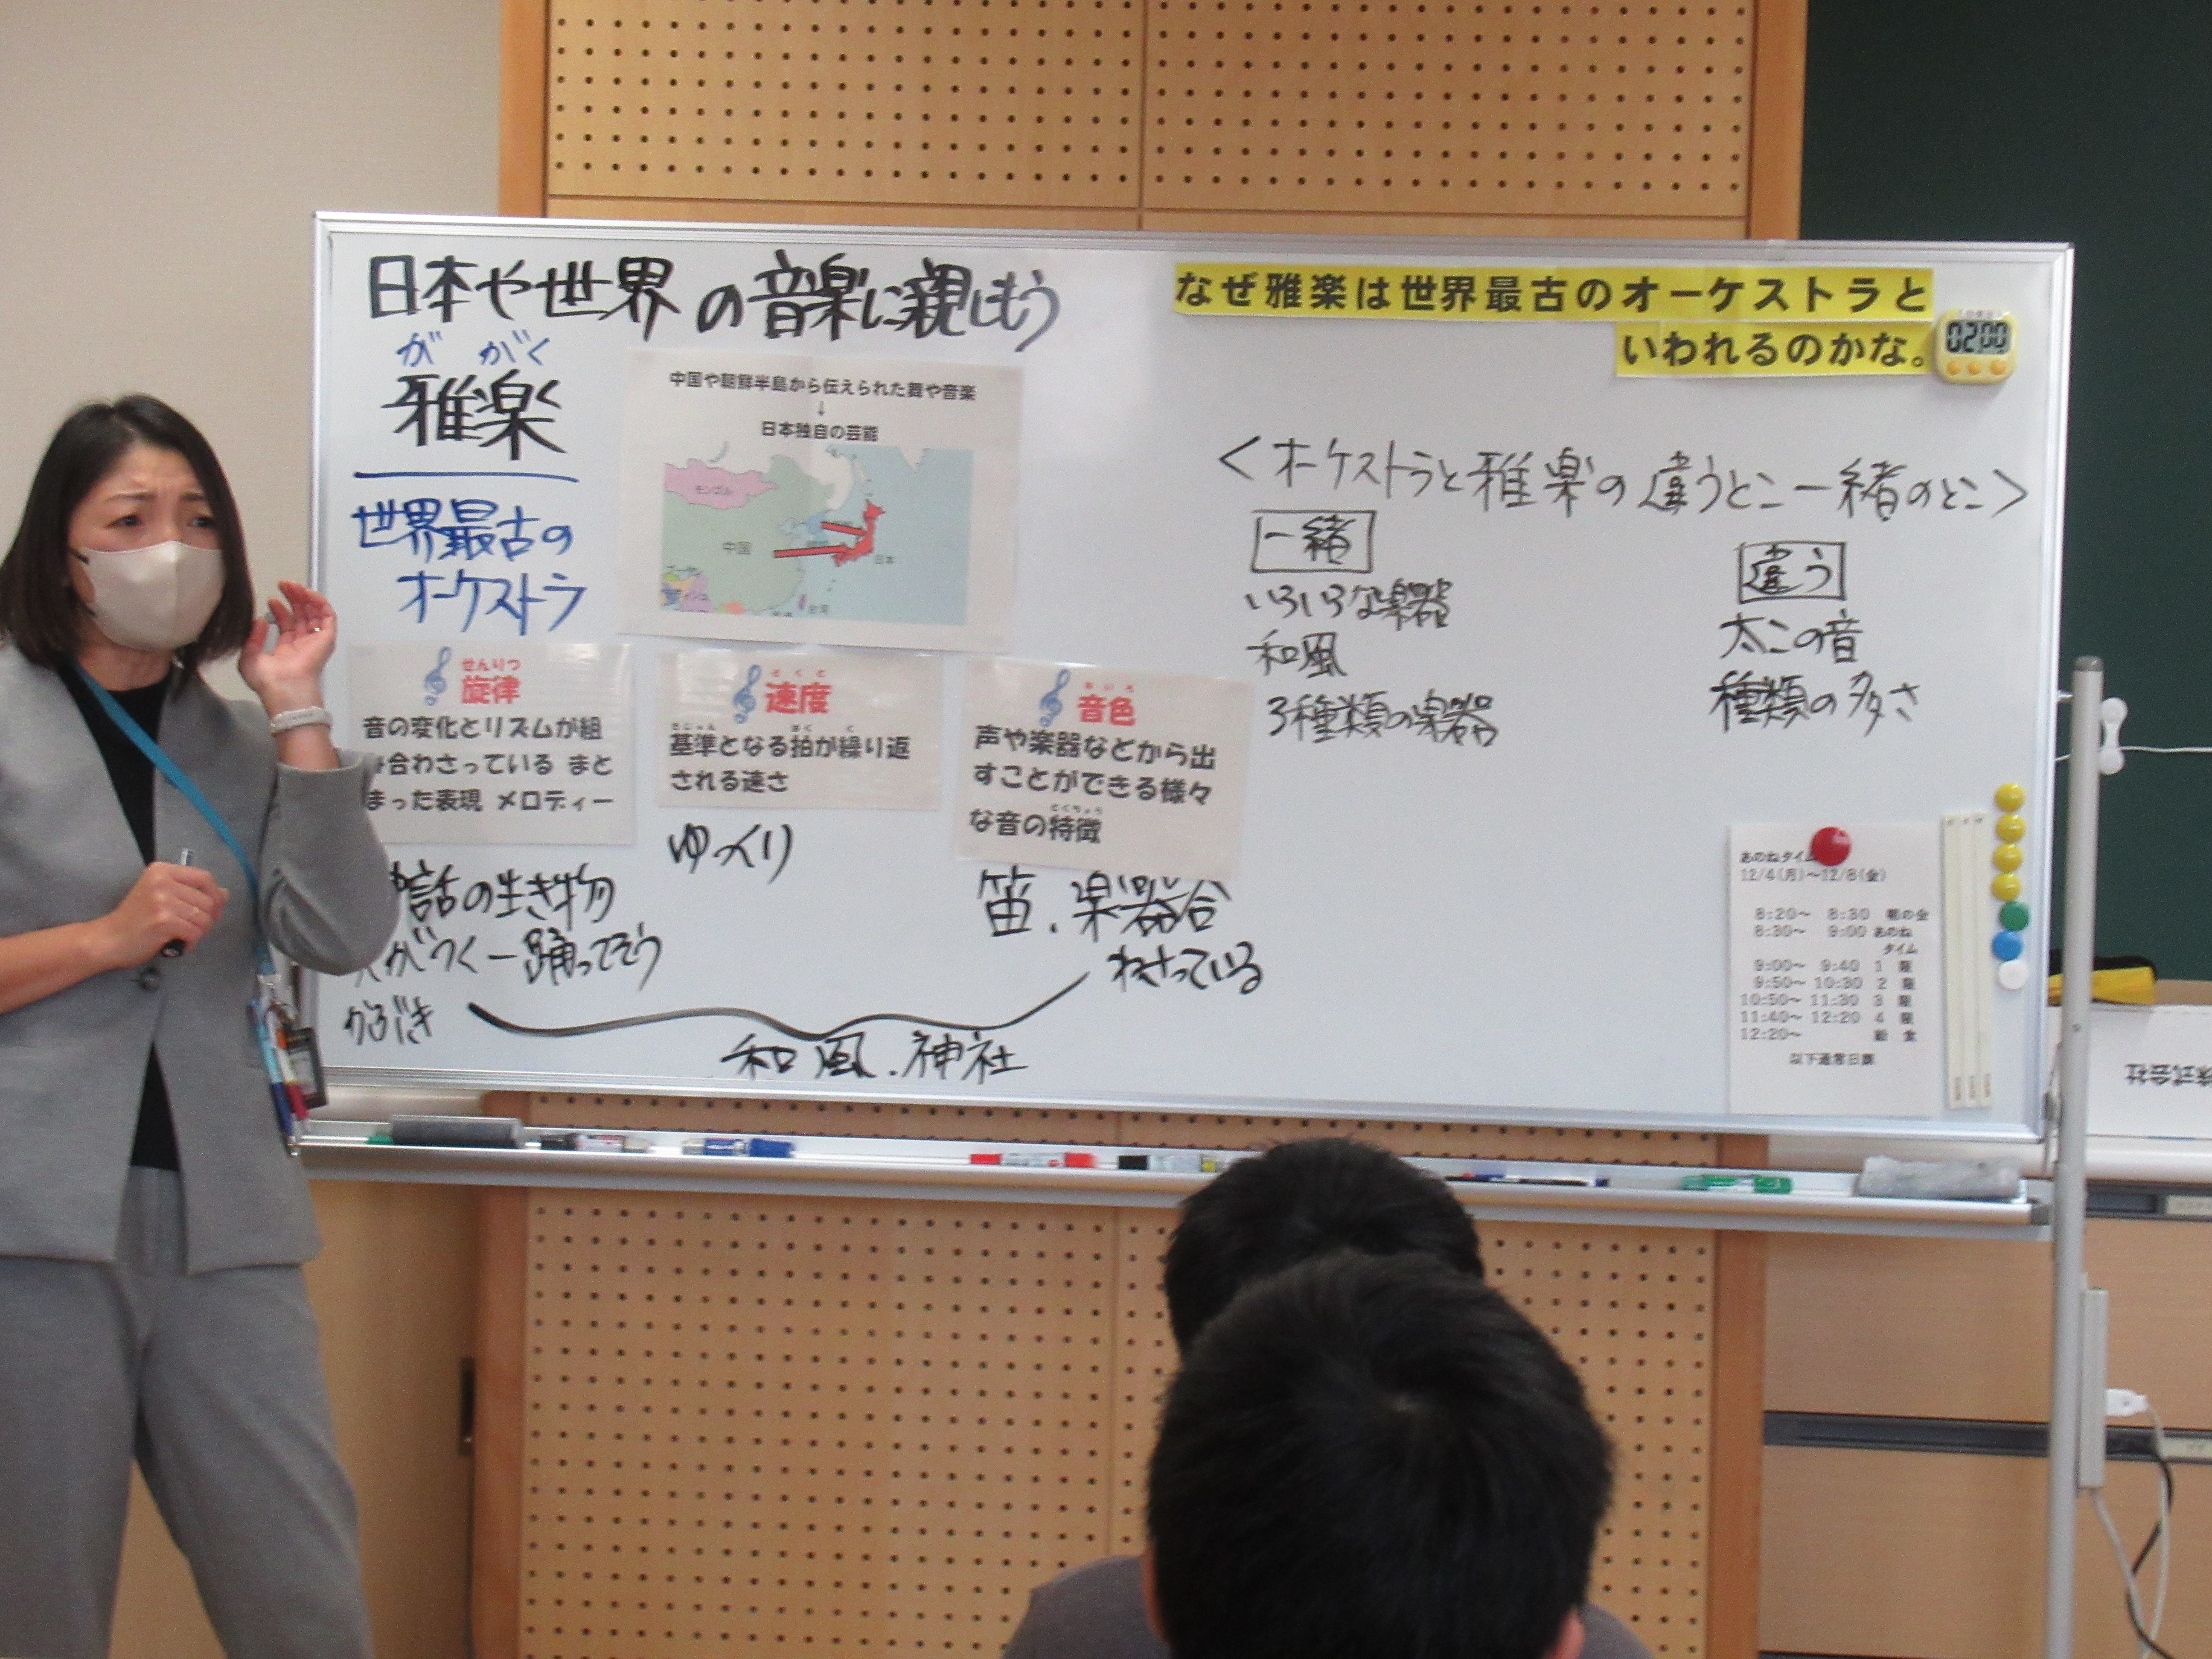 日本や世界の音楽に親しもう
ががく
雅楽
世界最古の
オーケストラ
中国や朝鮮半島から伝えられた舞や音楽
↓
日本独自の芸能
モンゴル
中国
日本
台湾
せんりつ
旋律
音の変化とリズムが組
合わさっている まと
まった表現 メロディー
そくど
速度
きじゅん はく く
基準となる拍が繰り返
される速さ
ねいろ
音色
声や楽器などから出
すことができる様々
とくちょう
な音の特徴
話の生き物
がつく
踊ってそう
かぶき
ゆっくり
笛、楽器合
わさっている
和風、神社
なぜ雅楽は世界最古のオーケストラと
いわれるのかな。
02 00
<オーケストラと雅楽の違うとこ一緒のとこ>
一緒
いろいろな楽器
和風
3種類の楽器
違う
太この音
種類の多さ
あのねタイム
12/4(月)~12/8(金)
8:20~ 8:30 朝の会
8:30~ 9:00 あのね
タイム
9:00~ 9:40 1 限
9:50~ 10:30 2 限
10:50~ 11:30 3 限
11:40~ 12:20 4 限
12:20~ 給食
以下通常日課
株式会社